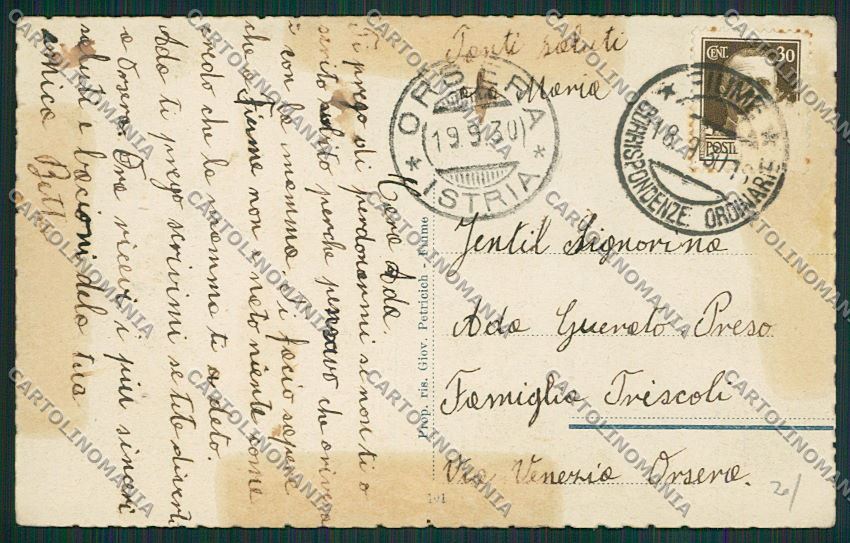 Cara Ada.
Ti prego di perdonarmi si non ti o
scrito subito perche pensavo che ariverai
con la mamma. Ti facio sapere
che a Fiume non e nato niente come
credo che la mamma ti a deto.
Ada ti prego scrivimi se ti te diverti
a Orsera. Ora ricevi i piu sinceri
saluti e bacioni dela tua
amica
Tanti saluti
Maria
ORSERA
(19.9.30)
* ISTRIA *
CENT. 30
POSTE
* FIUME *
18.9.30
CORRISPONDENZE ORDINARIE
Gentil Signorina
Ada Guerato Preso
Famiglia Triscoli
Via Venezia Orsera.
Prop. ris. Giov. Petricich - Fiume
101
20/
CARTOLINOMANIA